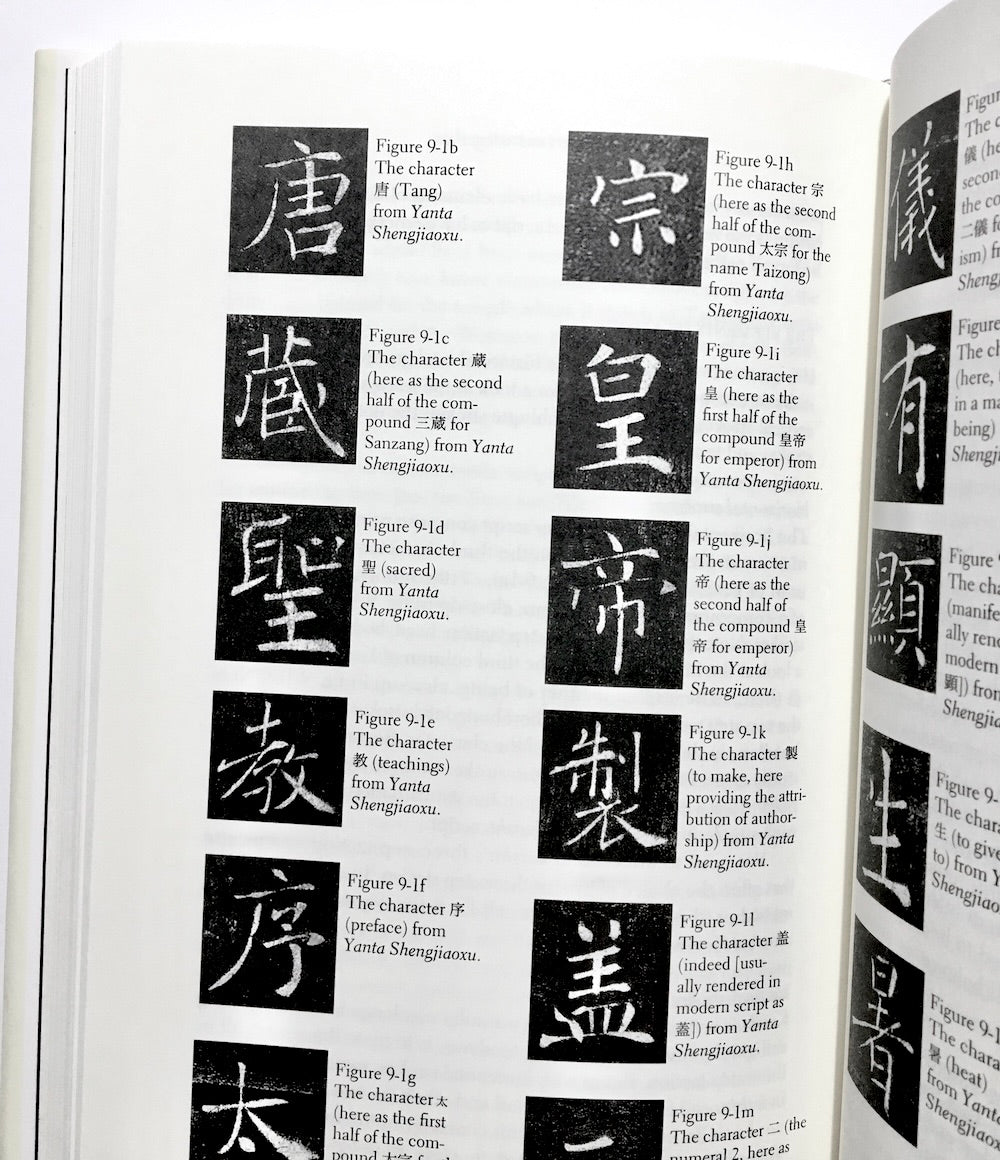 唐
Figure 9-1b
The character
唐 (Tang)
from Yanta
Shengjiaoxu.
蔵
Figure 9-1c
The character 蔵
(here as the second
half of the com-
pound 三蔵 for
Sanzang) from Yanta
Shengjiaoxu.
聖
Figure 9-1d
The character
聖 (sacred)
from Yanta
Shengjiaoxu.
教
Figure 9-1e
The character
教 (teachings)
from Yanta
Shengjiaoxu.
序
Figure 9-1f
The character 序
(preface) from
Yanta Shengjiaoxu.
太
Figure 9-1g
The character 太
(here as the first
half of the com-
pound 太宗 for
宗
Figure 9-1h
The character 宗
(here as the second
half of the com-
pound 太宗 for the
name Taizong)
from Yanta
Shengjiaoxu.
皇
Figure 9-1i
The character
皇 (here as the
first half of the
compound 皇帝
for emperor) from
Yanta Shengjiaoxu.
帝
Figure 9-1j
The character
帝 (here as the
second half of
the compound 皇
帝 for emperor)
from Yanta
Shengjiaoxu.
製
Figure 9-1k
The character 製
(to make, here
providing the attri-
bution of author-
ship) from Yanta
Shengjiaoxu.
盖
Figure 9-1l
The character 盖
(indeed [usu-
ally rendered in
modern script as
蓋]) from Yanta
Shengjiaoxu.
二
Figure 9-1m
The character 二 (the
numeral 2, here as
儀
The c
儀 (he
secon
the co
二儀 fo
ism) f
Sheng
有
Figure
The ch
(here,
in a ma
being)
Shengji
顯
Figure 9
The cha
(manife
ally ren
modern
顕]) from
Shengjia
生
Figure 9-
The chara
生 (to give
to) from Y
Shengjiao
暑
Figure 9-1
The chara
暑 (heat)
from Yanta
Shengjiaox